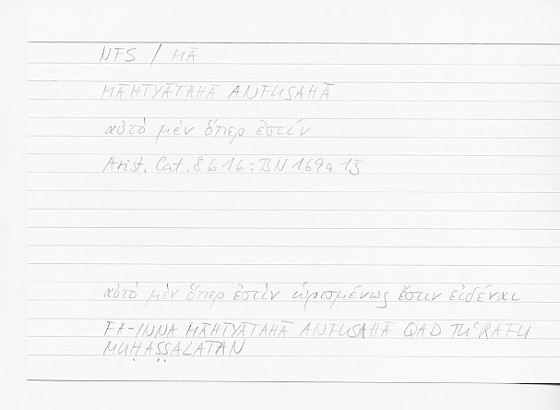 NFS / MĀ
MĀHĪYĀTAHĀ ANFUSAHĀ
αὐτὸ μὲν ὅπερ ἐστίν
Arist. Cat. 8b16; BN 169a13
αὐτὸ μὲν ὅπερ ἐστὶν ὡρισμένως ἔστιν εἰδέναι
FA-INNA MĀHĪYĀTAHĀ ANFUSAHĀ QAD TUʿRAFU
MUḤAṢṢALATAN